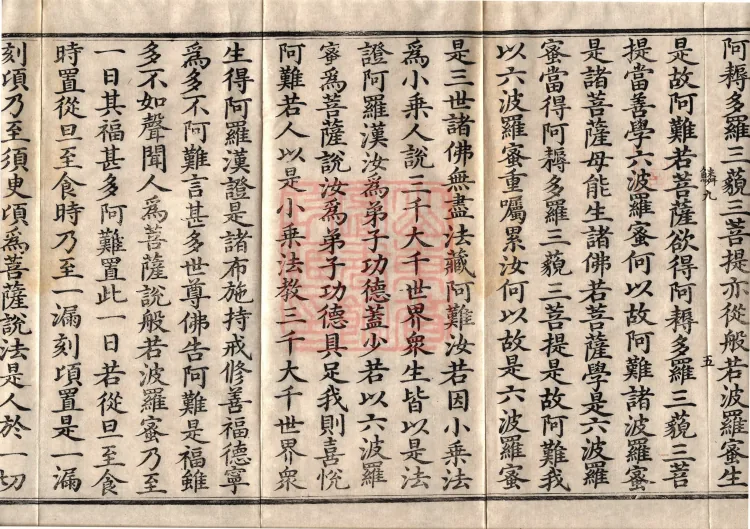 阿耨多羅三藐三菩提亦從般若波羅蜜生
鱗九
五
是故阿難若菩薩欲得阿耨多羅三藐三菩
提當善學六波羅蜜何以故阿難諸波羅蜜
是諸菩薩母能生諸佛若菩薩學是六波羅
蜜當得阿耨多羅三藐三菩提是故阿難我
以六波羅蜜重囑累汝何以故是六波羅蜜
是三世諸佛無盡法藏阿難汝若因小乘法
為小乘人說三千大千世界眾生皆以是法
證阿羅漢汝為弟子功德蓋少若以六波羅
蜜為菩薩說汝為弟子功德具足我則喜悅
阿難若人以是小乘法教三千大千世界眾
生得阿羅漢證是諸布施持戒修善福德寧
為多不阿難言甚多世尊佛告阿難是福雖
多不如聲聞人為菩薩說般若波羅蜜乃至
一日其福甚多阿難置此一日若從旦至食
時置從旦至食時乃至一漏刻頃置是一漏
刻頃乃至須臾頃為菩薩說法是人於一切